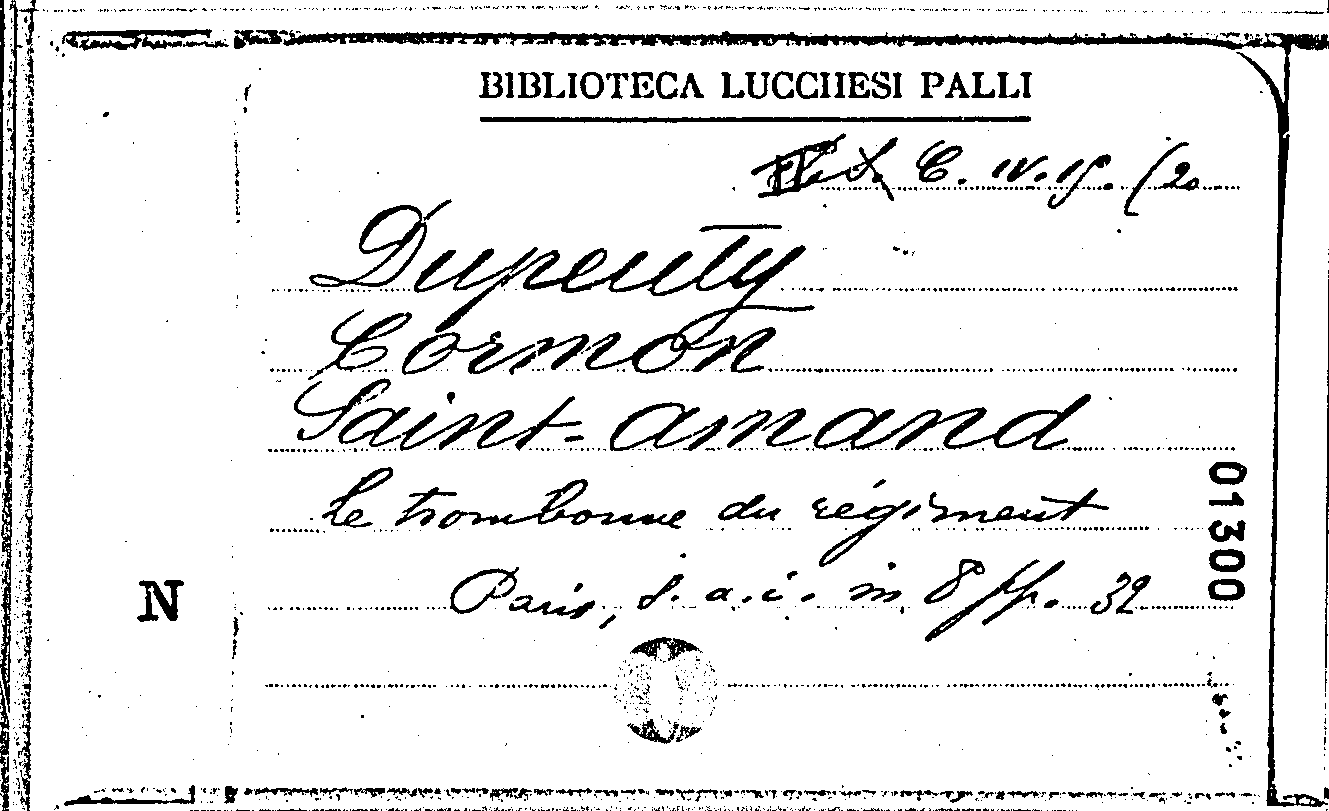 BIBLIOTECA LUCCHESI PALLI
C. IV. 15. (20
Dupeuty
Cormon
Saint-Amand
Le trombonne du régiment
Paris, s. a. i. in 8 pp. 32
N
01300